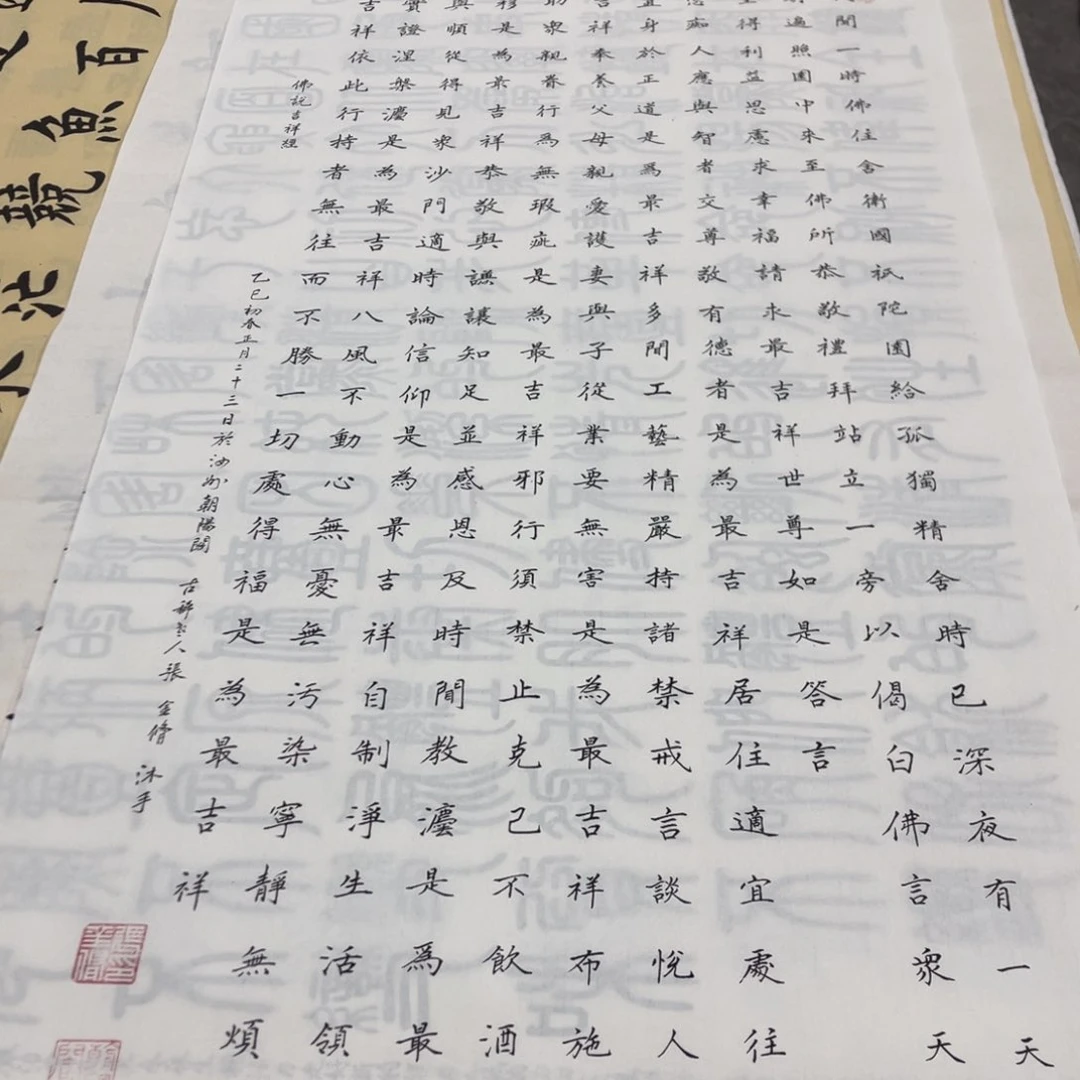 聞一時佛住舍衛國祇陀園給孤獨精舍時已深夜有一天
遍照園中來至佛所恭敬禮拜站立一旁以偈白佛言眾天
得利益思慮求幸福請求最吉祥世尊如是答言
痴人應與智者交尊敬有德者是為最吉祥居住適宜處往
身於正道是爲最吉祥多聞工藝精嚴持諸禁戒言談悅人
吉祥奉養父母親愛護妻與子從業要無害是為最吉祥布施
助眾親眷行為無瑕疵是為最吉祥邪行須禁止克己不飲酒
移是為最吉祥恭敬與謙讓知足並感恩及時聞教灋是爲最
與順從得見眾沙門適時論信仰是為最吉祥自制淨生活領
實證涅槃灋是為最吉祥八風不動心無憂無污染寧靜無煩
吉祥依此行持者無往而不勝一切處得福是為最吉祥
佛說吉祥經
乙巳初春正月二十三日於汝州朝陽閣 古許老人張金脩 沐手
百魚競